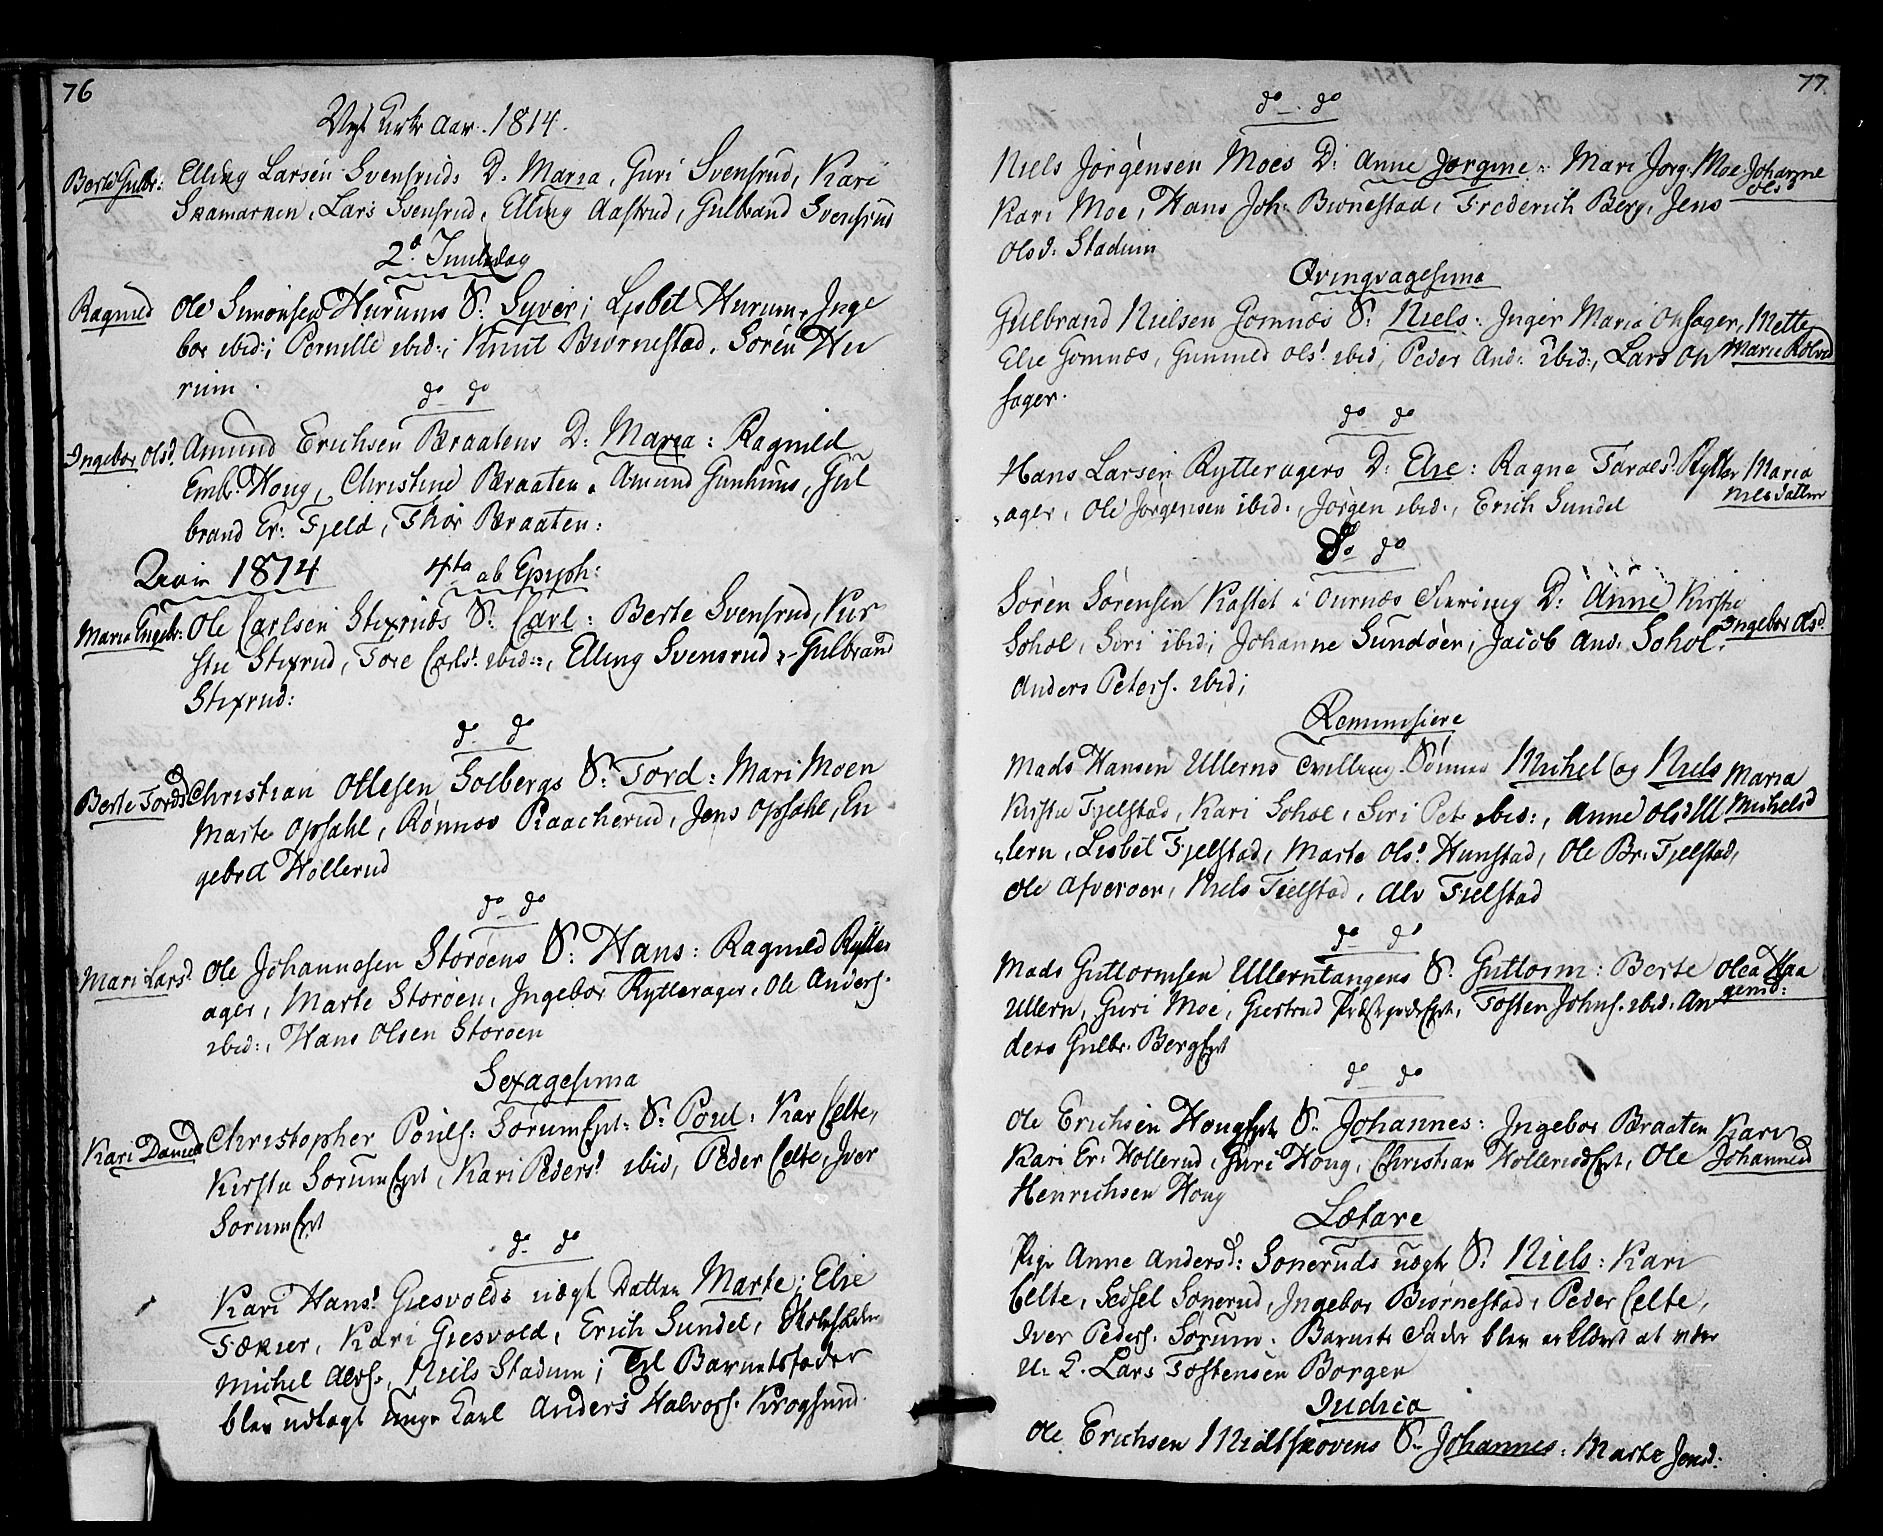 76
Kirke Aar 1814.
Berte Gulbr: Elling Larsen Svensruds D. Maria, Guri Svensrud, Kari
Skamarken, Lars Svensrud, Elling Aastrud, Gulbrand Svensrud
2d Juuledag
Ragnild Ole Simonsen Hurums S. Syver; Lisbet Hurum, Inge
bor ibid:; Pernille ibid:; Knut Biørnestad. Søren Hu
rum.
do do
Ingebor Olsd. Amund Erichsen Braatens D: Maria: Ragnild
Emb. Houg, Christine Braaten, Amund Gunhuus, Gul
brand Er: Fjeld, Thor Braaten:
1814 4ta ab Epiph:
Maria Engebr: Ole Carlsen Stixruds S. Carl: Berte Svensrud, Kir
stie Stixrud, Tore Carls. ibid:, Elling Svensrud, Gulbrand
Stixrud:
do do
Berte Tords Christian Ollesen Solbergs S. Tord: Mari Moen
Marte Opsahl, Rønnov Raacherud, Jens Opsahl, En
gebret Hollerud
do do
Mari Larsd. Ole Johannesen Storøens S: Hans: Ragnild Rytter
ager, Marte Storøen, Ingebor Rytterager, Ole Anders.
ibid:, Hans Olsen Storøen
Sexagesima
Kari Danield Christopher Pouls: SørumEnt: S. Poul: Kar Celte,
Kirstie SørumEnt, Kari Peders. ibid, Peder Celte, Iver
SørumEnt
do do
Kari Hans. Giesvolds uægt Datter Marte; Elie
Fækier, Kari Giesvold, Erich Sundet,
Michel Alvs., Niels Stadum; Til Barnetsfader
blev udlagt unge Carl Anders Halvors. Krogsund.
77
do do
Niels Jørgensen Moes D: Anne Jørgine: Mari Jørg. Moe, Johanne
Olsd
Kari Moe, Hans Joh. Biønestad, Frederich Berg, Jens
Olsd: Stadum
Qvinqvagesima
Gulbrand Nielsen Gomnæs S. Niels: Inger Maria Onsager, Mette
Elie Gomnæs, Gunnild Ols. ibid, Peder And: ibid:, Lars On Marie
sager.
do do
Hans Larsen Rytteragers D: Elie: Ragne Taraldsd. Rytter Maria
Nilsdatter
ager, Ole Jørgensen ibid., Jørgen ibid:, Erich Sundet
do do
Søren Sørensen Kastet i Ournæs D: Anne Kirstie
Sohol, Siri ibid; Johanne Sundøen; Jacob And: Sohol. Ingebor Olsd.
Anders Peters. ibid;
Reminisiere
Mads Hansen Ullerns Tvilling Sønner Michel og Niels Maria
Michelsd
Kirstie Fjelstad, Kari Sohol, Siri Pet. ibid:, Anne Olsd Ul
lern, Lisbet Fjelstad, Marte Ols. Hunstad, Ole Br. Fjelstad,
Ole Afverøen, Niels Fielstad, Alv Fielstad
do do
Mads Guttormsen Ullerntangens S. Guttorm: Berte Olea Haa
gensd:
Ullern, Guri Moe, Giertrud PræstegrdsEnt, Tosten Johns. ibid: An
ders Gulbr. BergEnt
do do
Ole Erichsen HougEnt S. Johannes: Ingebor Braaten Kari
Johannesd
Kari Er: Hollerud, Guri Houg, Christian HollerudEnt, Ole
Henrichsen Houg
Lætare
Pige Anne Andersd: Soneruds uægte S. Niels: Kari
Celte, Sidsel Sonerud, Ingebor Biørnestad, Peder Celte,
Iver Peders. Sørum. Barnets Fader blev erklæret at være
U. C. Lars Tostensen Borgen
Judica
Ole Erichsen Midtskovens S. Johannes: Marte Jensd: